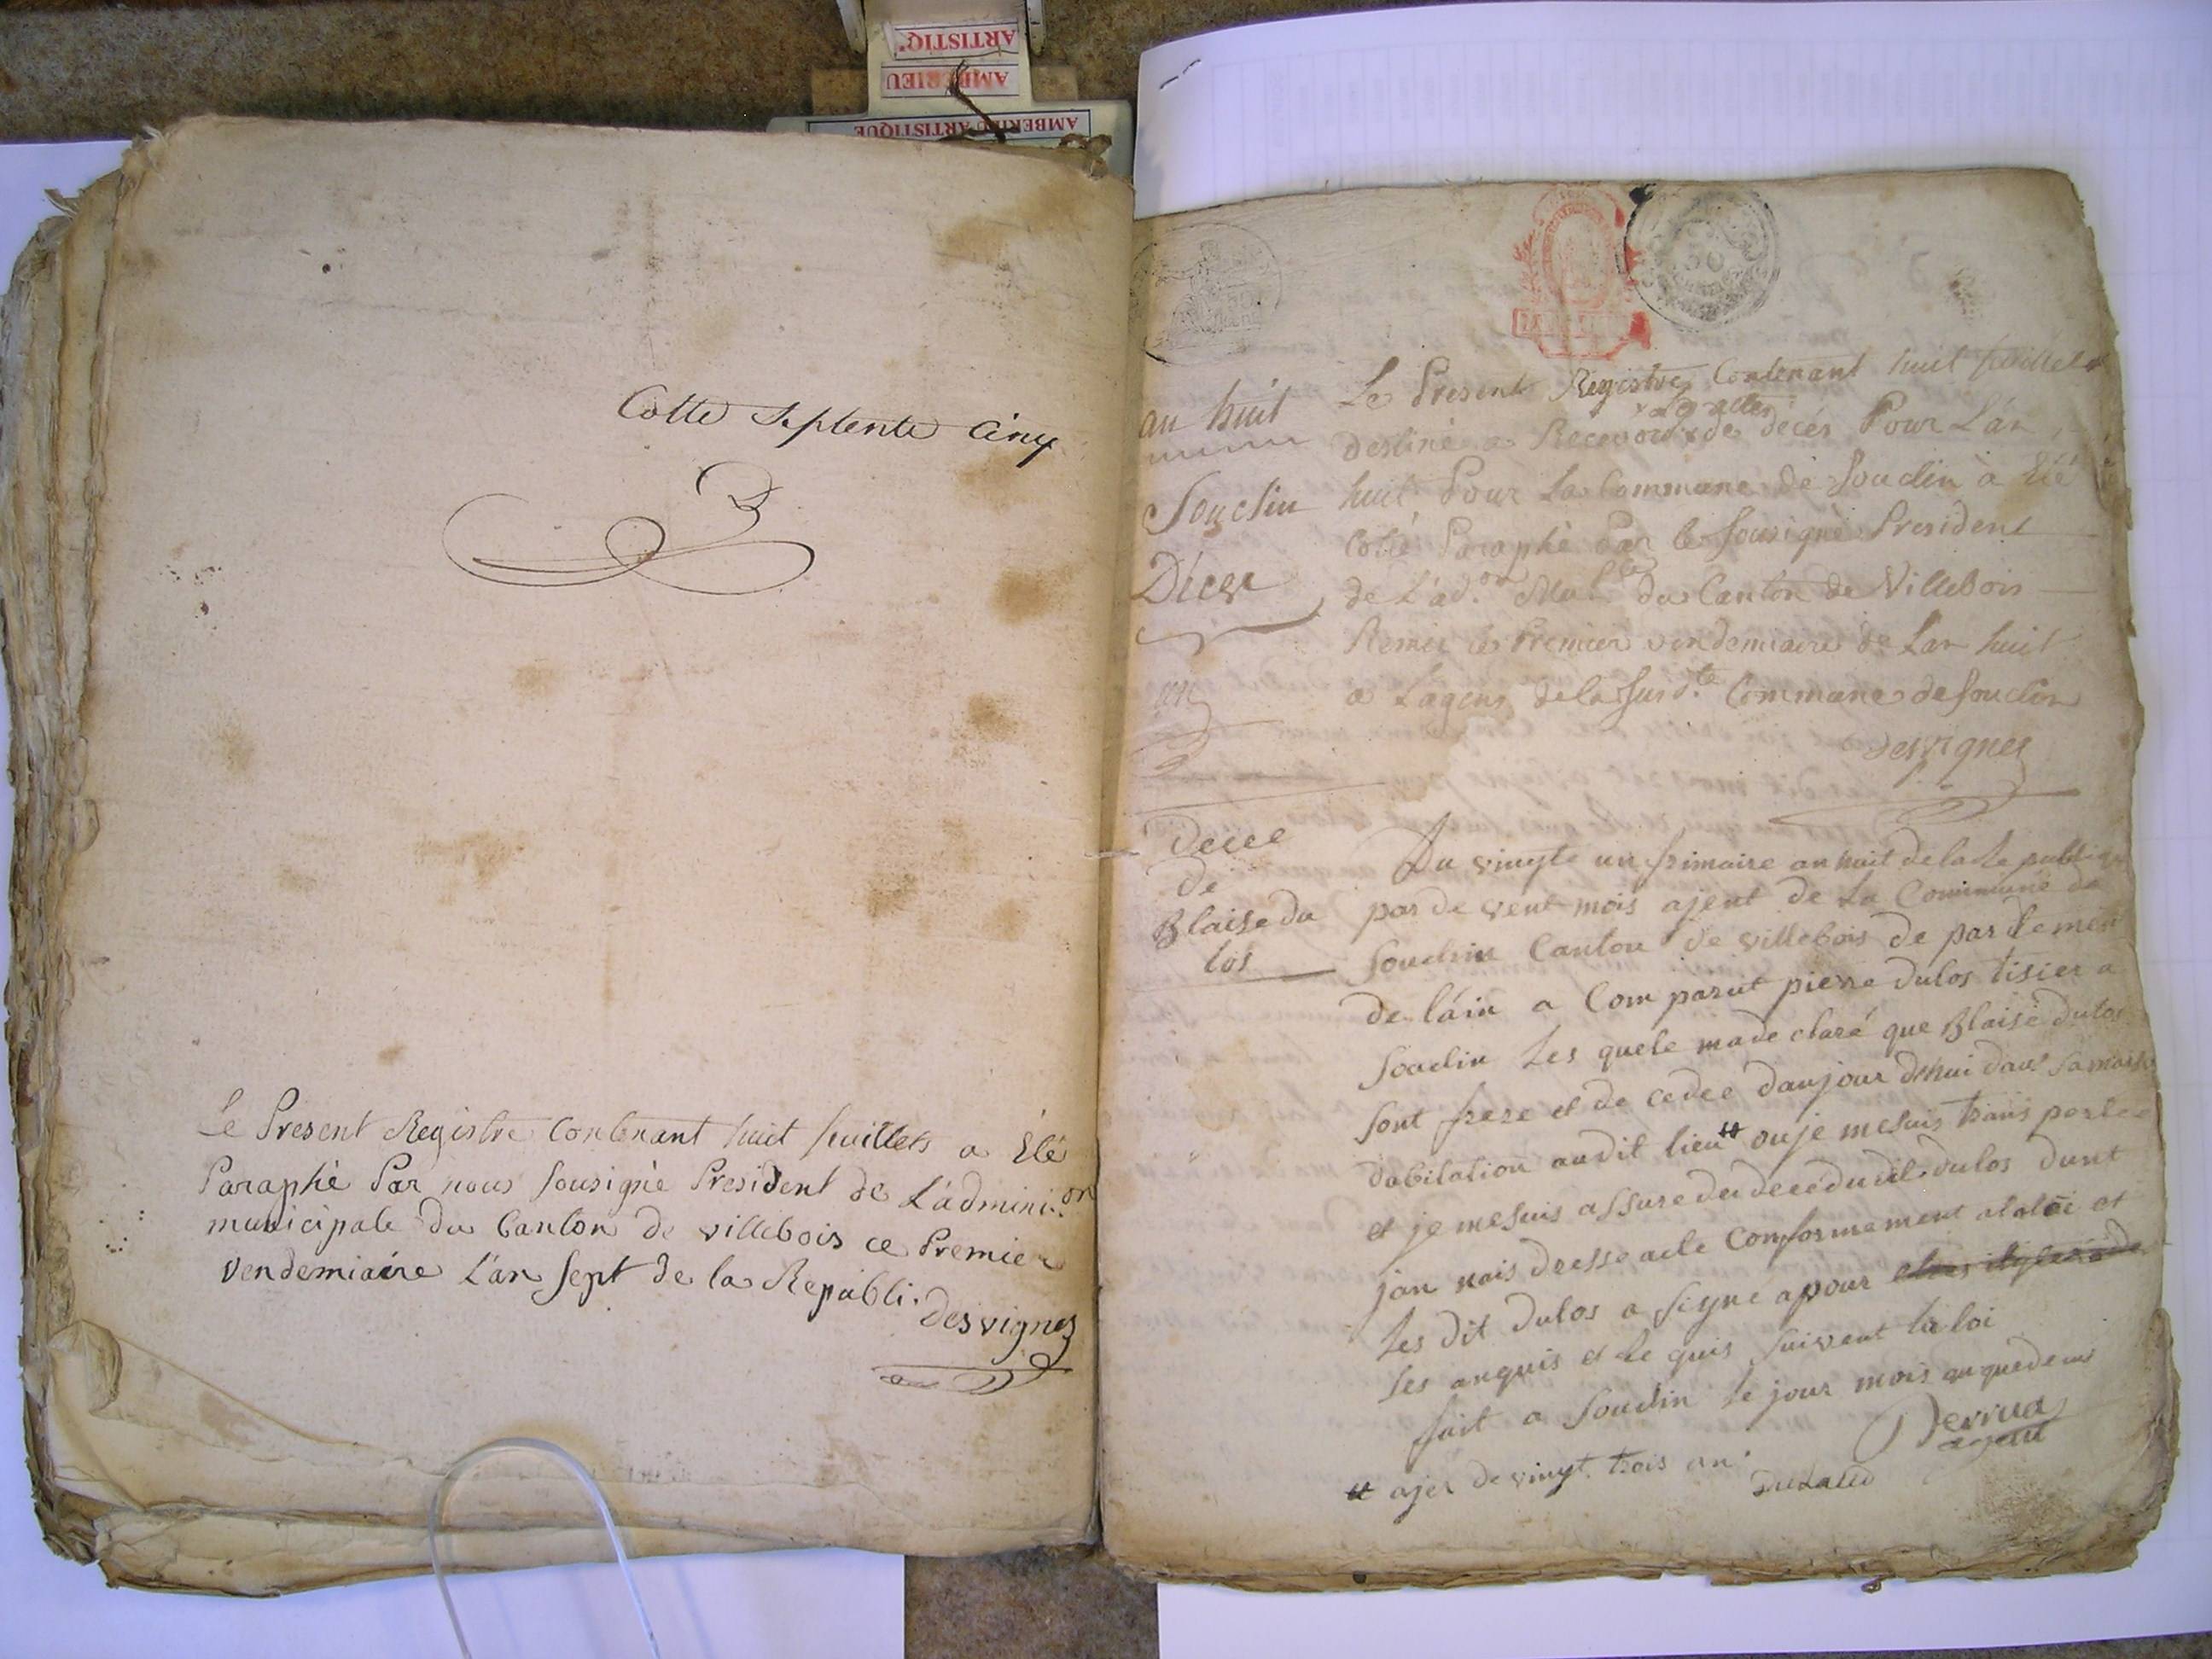 ARTISTIQ'
AMBERIEU
AMBERIEU ARTISTIQUE
Cotte Septente Cinq
Le Present Registre Contenant huit feuillets a Eté
Paraphé Par nous Sousigné President de L'admini.on
municipale du Canton de villebois ce Premier
Vendemiaire L'an Sept de la Republi.
Desvignes
an huit
Souclin
Déces
un
Le Present Registre Contenant huit feuillets
Les actes
destiné a Recevoir x de décés Pour L'an
huit Pour La Commune de Souclin à Eté
Cotté Paraphé Par le Sousigné President
de L'ad.on Mu.le du Canton de Villebois
Remis le Premier vendemiaire de Lan huit
a Lagent de la Susd.te Commune de Souclin
Desvignes
Decee
de
Blaise du
los
Du vingte un frimaire an huit de la Re publique
par de vent mois ajent de La Commune de
Souclin Canton de villebois de partemen
de láin a Com parut pierre dulos tisier a
Souclin Les quele ma de claré que Blaise dulos
sont frere et de cedee daujour dhui dans sa maison
dabitation audit lieu tt ou je me suis trans portee
et je me suis assure du decé dudit dulos dunt
jan nais dresse acte Conformement a la loi et
Les dit dulos a signé apour
Les anquis et Re quis suivent la loi
fait a Souclin le jour mois an que de sus
tt ajer de vingt trois an
Derrua
agent
Dulaud